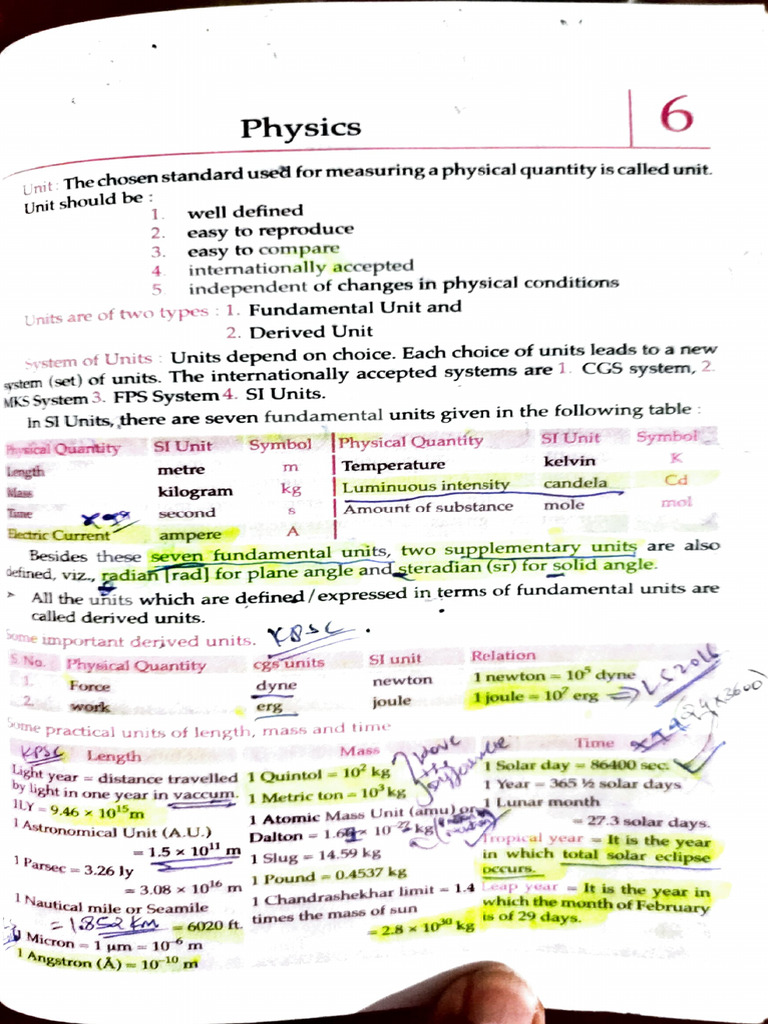 Physics
6
Unit : The chosen standard used for measuring a physical quantity is called unit.
Unit should be :
1. well defined
2. easy to reproduce
3. easy to compare
4. internationally accepted
5. independent of changes in physical conditions
Units are of two types : 1. Fundamental Unit and
2. Derived Unit
System of Units : Units depend on choice. Each choice of units leads to a new
system (set) of units. The internationally accepted systems are 1. CGS system, 2.
MKS System 3. FPS System 4. SI Units.
In SI Units, there are seven fundamental units given in the following table :
Physical Quantity SI Unit Symbol Physical Quantity SI Unit Symbol
Length metre m Temperature kelvin K
Mass kilogram kg Luminuous intensity candela Cd
Time second s Amount of substance mole mol
Electric Current ampere A
Besides these seven fundamental units, two supplementary units are also
defined, viz., radian [rad] for plane angle and steradian (sr) for solid angle.
➤ All the units which are defined/expressed in terms of fundamental units are
called derived units.
Some important derived units. KPSC
S. No. Physical Quantity cgs units SI unit Relation
1. Force dyne newton 1 newton = 10⁵ dyne
2. work erg joule 1 joule = 10⁷ erg
Some practical units of length, mass and time
KPSC Length Mass Time
Light year = distance travelled
by light in one year in vaccum.
1LY = 9.46 × 10¹⁵m
1 Astronomical Unit (A.U.)
= 1.5 × 10¹¹ m
1 Parsec = 3.26 ly
= 3.08 × 10¹⁶ m
1 Nautical mile or Seamile
= 1.852 km = 6020 ft.
1 Micron = 1 µm = 10⁻⁶ m
1 Angstron (Å) = 10⁻¹⁰ m
1 Quintol = 10² kg
1 Metric ton = 10³ kg
1 Atomic Mass Unit (amu) or
Dalton = × 10⁻²⁷ kg
1 Slug = 14.59 kg
1 Pound = 0.4537 kg
1 Chandrashekhar limit = 1.4
times the mass of sun
= 2.8 × 10³⁰ kg
1 Solar day = 86400 sec.
1 Year = 365 ½ solar days
1 Lunar month
= 27.3 solar days.
Tropical year = It is the year
in which total solar eclipse
occurs.
Leap year = It is the year in
which the month of February
is of 29 days.